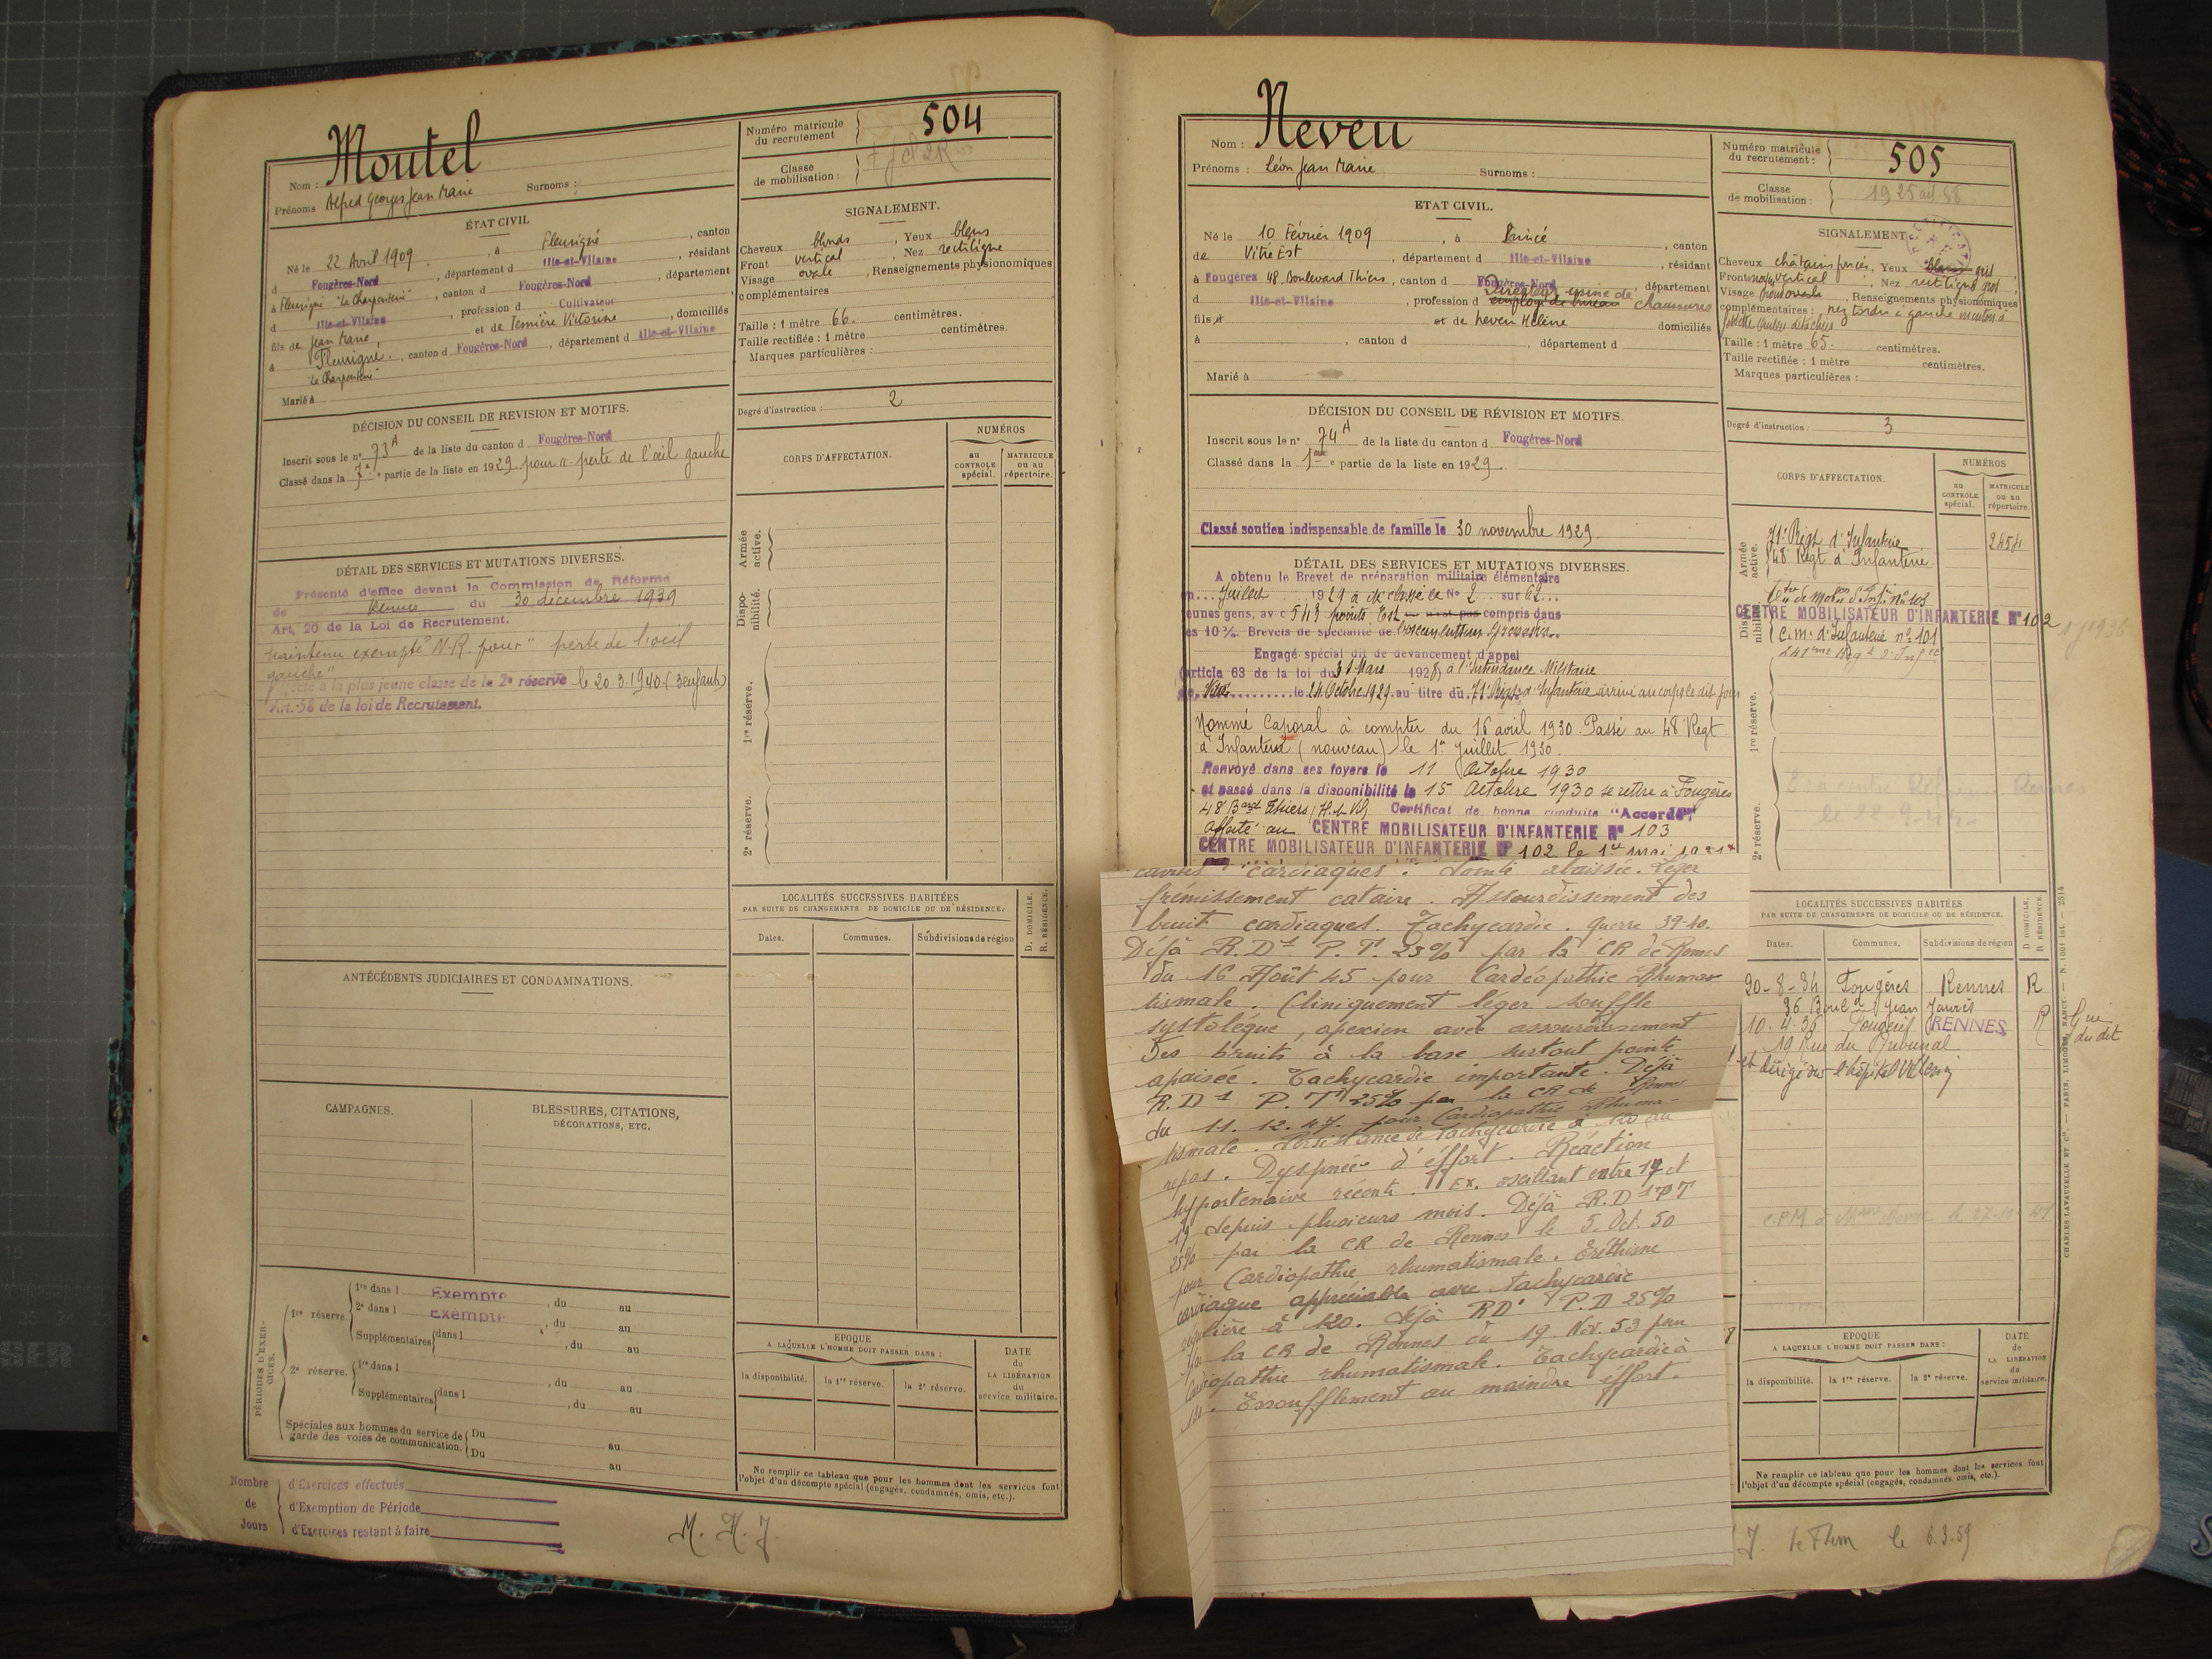 Moutel
Nom :
Prénoms Alfred Georges Jean Marie Surnoms :
Numéro matricule du recrutement 504
Classe de mobilisation :
ÉTAT CIVIL
Né le 22 Avril 1909, à Fleurigné, canton
d Fougères-Nord, département d Ille-et-Vilaine, résidant
à Fleurigné "La Charpenterie", canton d Fougères-Nord, département
d Ille-et-Vilaine, profession d Cultivateur
fils de Jean Marie, et de Victorine, domiciliés
à Fleurigné, canton d Fougères-Nord, département d Ille-et-Vilaine
"La Charpenterie"
Marié à
SIGNALEMENT.
Cheveux blonds, Yeux bleus
Front vertical, Nez rectiligne
Visage ovale, Renseignements physionomiques
complémentaires
Taille : 1 mètre 66. centimètres.
Taille rectifiée : 1 mètre centimètres.
Marques particulières :
Degré d'instruction : 2
DÉCISION DU CONSEIL DE REVISION ET MOTIFS.
Inscrit sous le n° 73 A de la liste du canton d Fougères-Nord
Classé dans la partie de la liste en 1929 pour "perte de l'œil gauche
DÉTAIL DES SERVICES ET MUTATIONS DIVERSES.
Présenté d'office devant la Commission de Réforme
de Rennes du 30 décembre 1939
Art. 20 de la Loi de Recrutement.
maintenu exempté N.R. pour "perte de l'œil
gauche"
Affecté à la plus jeune classe de la 2e réserve le 20.3.1940 (3 enfants)
Art. 58 de la loi de Recrutement.
CORPS D'AFFECTATION.
NUMÉROS
au CONTROLE spécial.
MATRICULE ou au répertoire.
Armée active.
Disponibilité.
1re réserve.
2e réserve.
LOCALITÉS SUCCESSIVES HABITÉES
PAR SUITE DE CHANGEMENTS DE DOMICILE OU DE RÉSIDENCE.
Dates. Communes. Subdivisions de région D. DOMICILE. R. RÉSIDENCE.
ANTÉCÉDENTS JUDICIAIRES ET CONDAMNATIONS.
CAMPAGNES.
BLESSURES, CITATIONS, DÉCORATIONS, ETC.
PÉRIODES D'EXERCICES.
1re réserve. 1re dans l Exempté, du au
2e dans l Exempté, du au
Supplémentaires dans l, du au
2e réserve. 1re dans l, du au
Supplémentaires dans l, du au
Spéciales aux hommes du service de garde des voies de communication. Du au
Du au
EPOQUE
A LAQUELLE L'HOMME DOIT PASSER DANS :
la disponibilité. la 1re réserve. la 2e réserve.
DATE de LA LIBÉRATION du service militaire.
Ne remplir ce tableau que pour les hommes dont les services font
l'objet d'un décompte spécial (engagés, condamnés, omis, etc.).
Nombre de Jours
d'Exercices effectués
d'Exemption de Période
d'Exercices restant à faire
Neveu
Nom :
Prénoms : Léon Jean Marie Surnoms :
Numéro matricule du recrutement : 505
Classe de mobilisation : 1925
ETAT CIVIL.
Né le 10 Février 1909, à Princé, canton
de Vitré Est, département d Ille-et-Vilaine, résidant
à Fougères 48, Boulevard Thiers, canton d Fougères-Nord, département
d Ille-et-Vilaine, profession d employé de bureau Directeur usine de chaussures
fils d et de Neveu Hélène domiciliés
à, canton d, département d
Marié à
SIGNALEMENT
Cheveux châtains foncés, Yeux bleus gris
Front vertical, Nez rectiligne gros
Visage ovale, Renseignements physionomiques
complémentaires : nez tordu à gauche menton à
Taille : 1 mètre 65. centimètres.
Taille rectifiée : 1 mètre centimètres.
Marques particulières :
Degré d'instruction : 3
DÉCISION DU CONSEIL DE RÉVISION ET MOTIFS.
Inscrit sous le n° 74 A de la liste du canton d Fougères-Nord
Classé dans la 1ère partie de la liste en 1929.
Classé soutien indispensable de famille le 30 novembre 1929.
DÉTAIL DES SERVICES ET MUTATIONS DIVERSES.
A obtenu le Brevet de préparation militaire élémentaire
en Juillet 1929 a été classé le N° 2 sur 62
jeunes gens, avec 543 points Est ou n'est pas compris dans
les 10%. Brevets de spécialité de
Engagé spécial dit de devancement d'appel
(article 63 de la loi du 31 Mars 1928) à l'Intendance Militaire
le 24 Octobre 1929 au titre du 71e Régt d'Infanterie arrivé au corps le dit jour
Nommé Caporal à compter du 16 avril 1930. Passé au 48e Regt
d'Infanterie (nouveau) le 1er juillet 1930.
Renvoyé dans ses foyers le 11 Octobre 1930
et passé dans la disponibilité le 15 Octobre 1930 se retire à Fougères
48 Bard Thiers (I.-et-V.) Certificat de bonne conduite "Accordé"
Affecté au CENTRE MOBILISATEUR D'INFANTERIE N° 103
CENTRE MOBILISATEUR D'INFANTERIE N° 102 le 1er mai
CORPS D'AFFECTATION.
NUMÉROS
au CONTROLE spécial.
MATRICULE ou au répertoire.
Armée active.
71e Régt d'Infanterie 2454
48e Régt d'Infanterie
Disponibilité.
Ctre de Mobon d'Infie N° 103
CENTRE MOBILISATEUR D'INFANTERIE N° 102
C.M. d'Infanterie n° 101
241ème Régt d'Infie
1re réserve.
2e réserve.
Rennes
cardiaques. Pointe abaissée. Léger
frémissement cataire. Assourdissement des
bruit cardiaques. Tachycardie. Guerre 39-40.
Déjà R.D1 P.T. 25% par la CR de Rennes
du 16 Août 45 pour Cardéopathie Rhuma-
tismale. Cliniquement léger souffle
systoléque, apexien avec assourdissement
des bruits à la base surtout pointe
apaisée. Tachycardie importante. Déjà
R.D1 P.T. 25% par la CR de Rennes
du 11.12.47. pour Cardiopathie Rhuma-
tismale. Persistance de Tachycardie à 120 au
repos. Dyspnée d'effort. Réaction
hypertensive récente. Ex. oscillant entre 17 et
19 depuis plusieurs mois. Déjà R.D1 PT
25% par la CR de Rennes le 5. Oct. 50
pour Cardiopathie rhumatismale. Eréthisme
cardiaque appréciable avec tachycardie
régulière à 120. Déjà RD1 P.D 25%
par la CR de Rennes du 19 Nov. 53 pour
Cardiopathie rhumatismale. Tachycardie à
Essoufflement au moindre effort.
LOCALITÉS SUCCESSIVES HABITÉES
PAR SUITE DE CHANGEMENTS DE DOMICILE OU DE RÉSIDENCE.
Dates. Communes. Subdivisions de région D DOMICILE. R RÉSIDENCE.
20-8-34 Fougères Rennes R
36 Bould Jean Jaurès
10.4.36 Fougères RENNES R
19 Rue du Tribunal
et dirigé sur l'hôpital
EPOQUE
A LAQUELLE L'HOMME DOIT PASSER DANS :
la disponibilité. la 1re réserve. la 2e réserve.
DATE de LA LIBÉRATION du service militaire.
Ne remplir ce tableau que pour les hommes dont les services font
l'objet d'un décompte spécial (engagés, condamnés, omis, etc.).
le 6.3.59
CHARLES-LAVAUZELLE ET Cie. — PARIS, LIMOGES, NANCY.